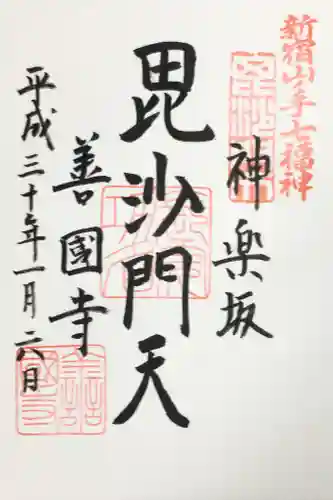 新宿山ノ手七福神
神楽坂
毘沙門天
善國寺
平成三十年一月二八日